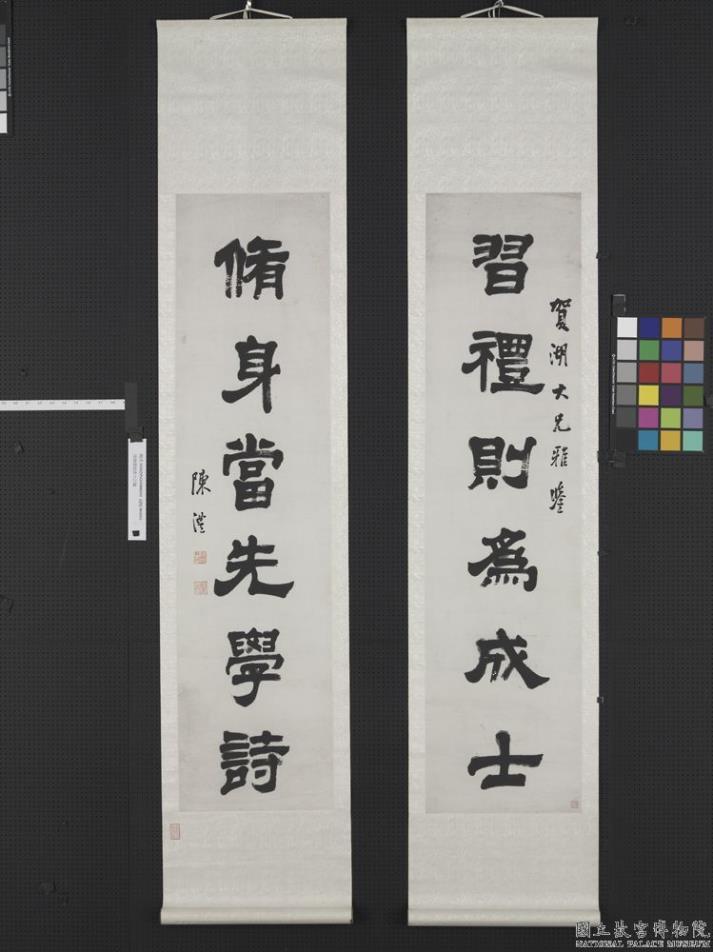 賀湖大兄雅鑒
習禮則為成士
脩身當先學詩
陳澧
國立故宮博物院
NATIONAL PALACE MUSEUM